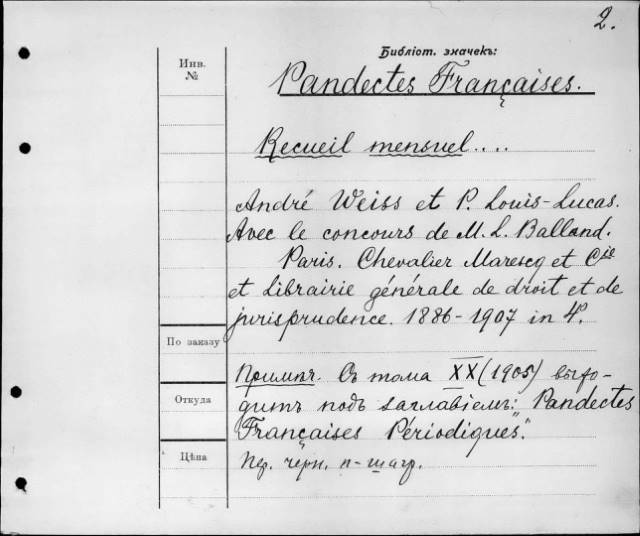 2.
Библіот. значекъ:
Инв.
№
Pandectes Françaises.
Recueil mensuel....
André Weiss et P. Louis-Lucas.
Avec le concours de M. L. Balland.
Paris. Chevalier Marescq et Cie
et Librairie générale de droit et de
jurisprudence. 1886-1907 in 4º.
По заказу
Примѣч. Съ тома XX (1905) выхо-
Откуда
дитъ подъ заглавіемъ: "Pandectes
Françaises Périodiques".
Цѣна
Пер. черн. п-шагр.